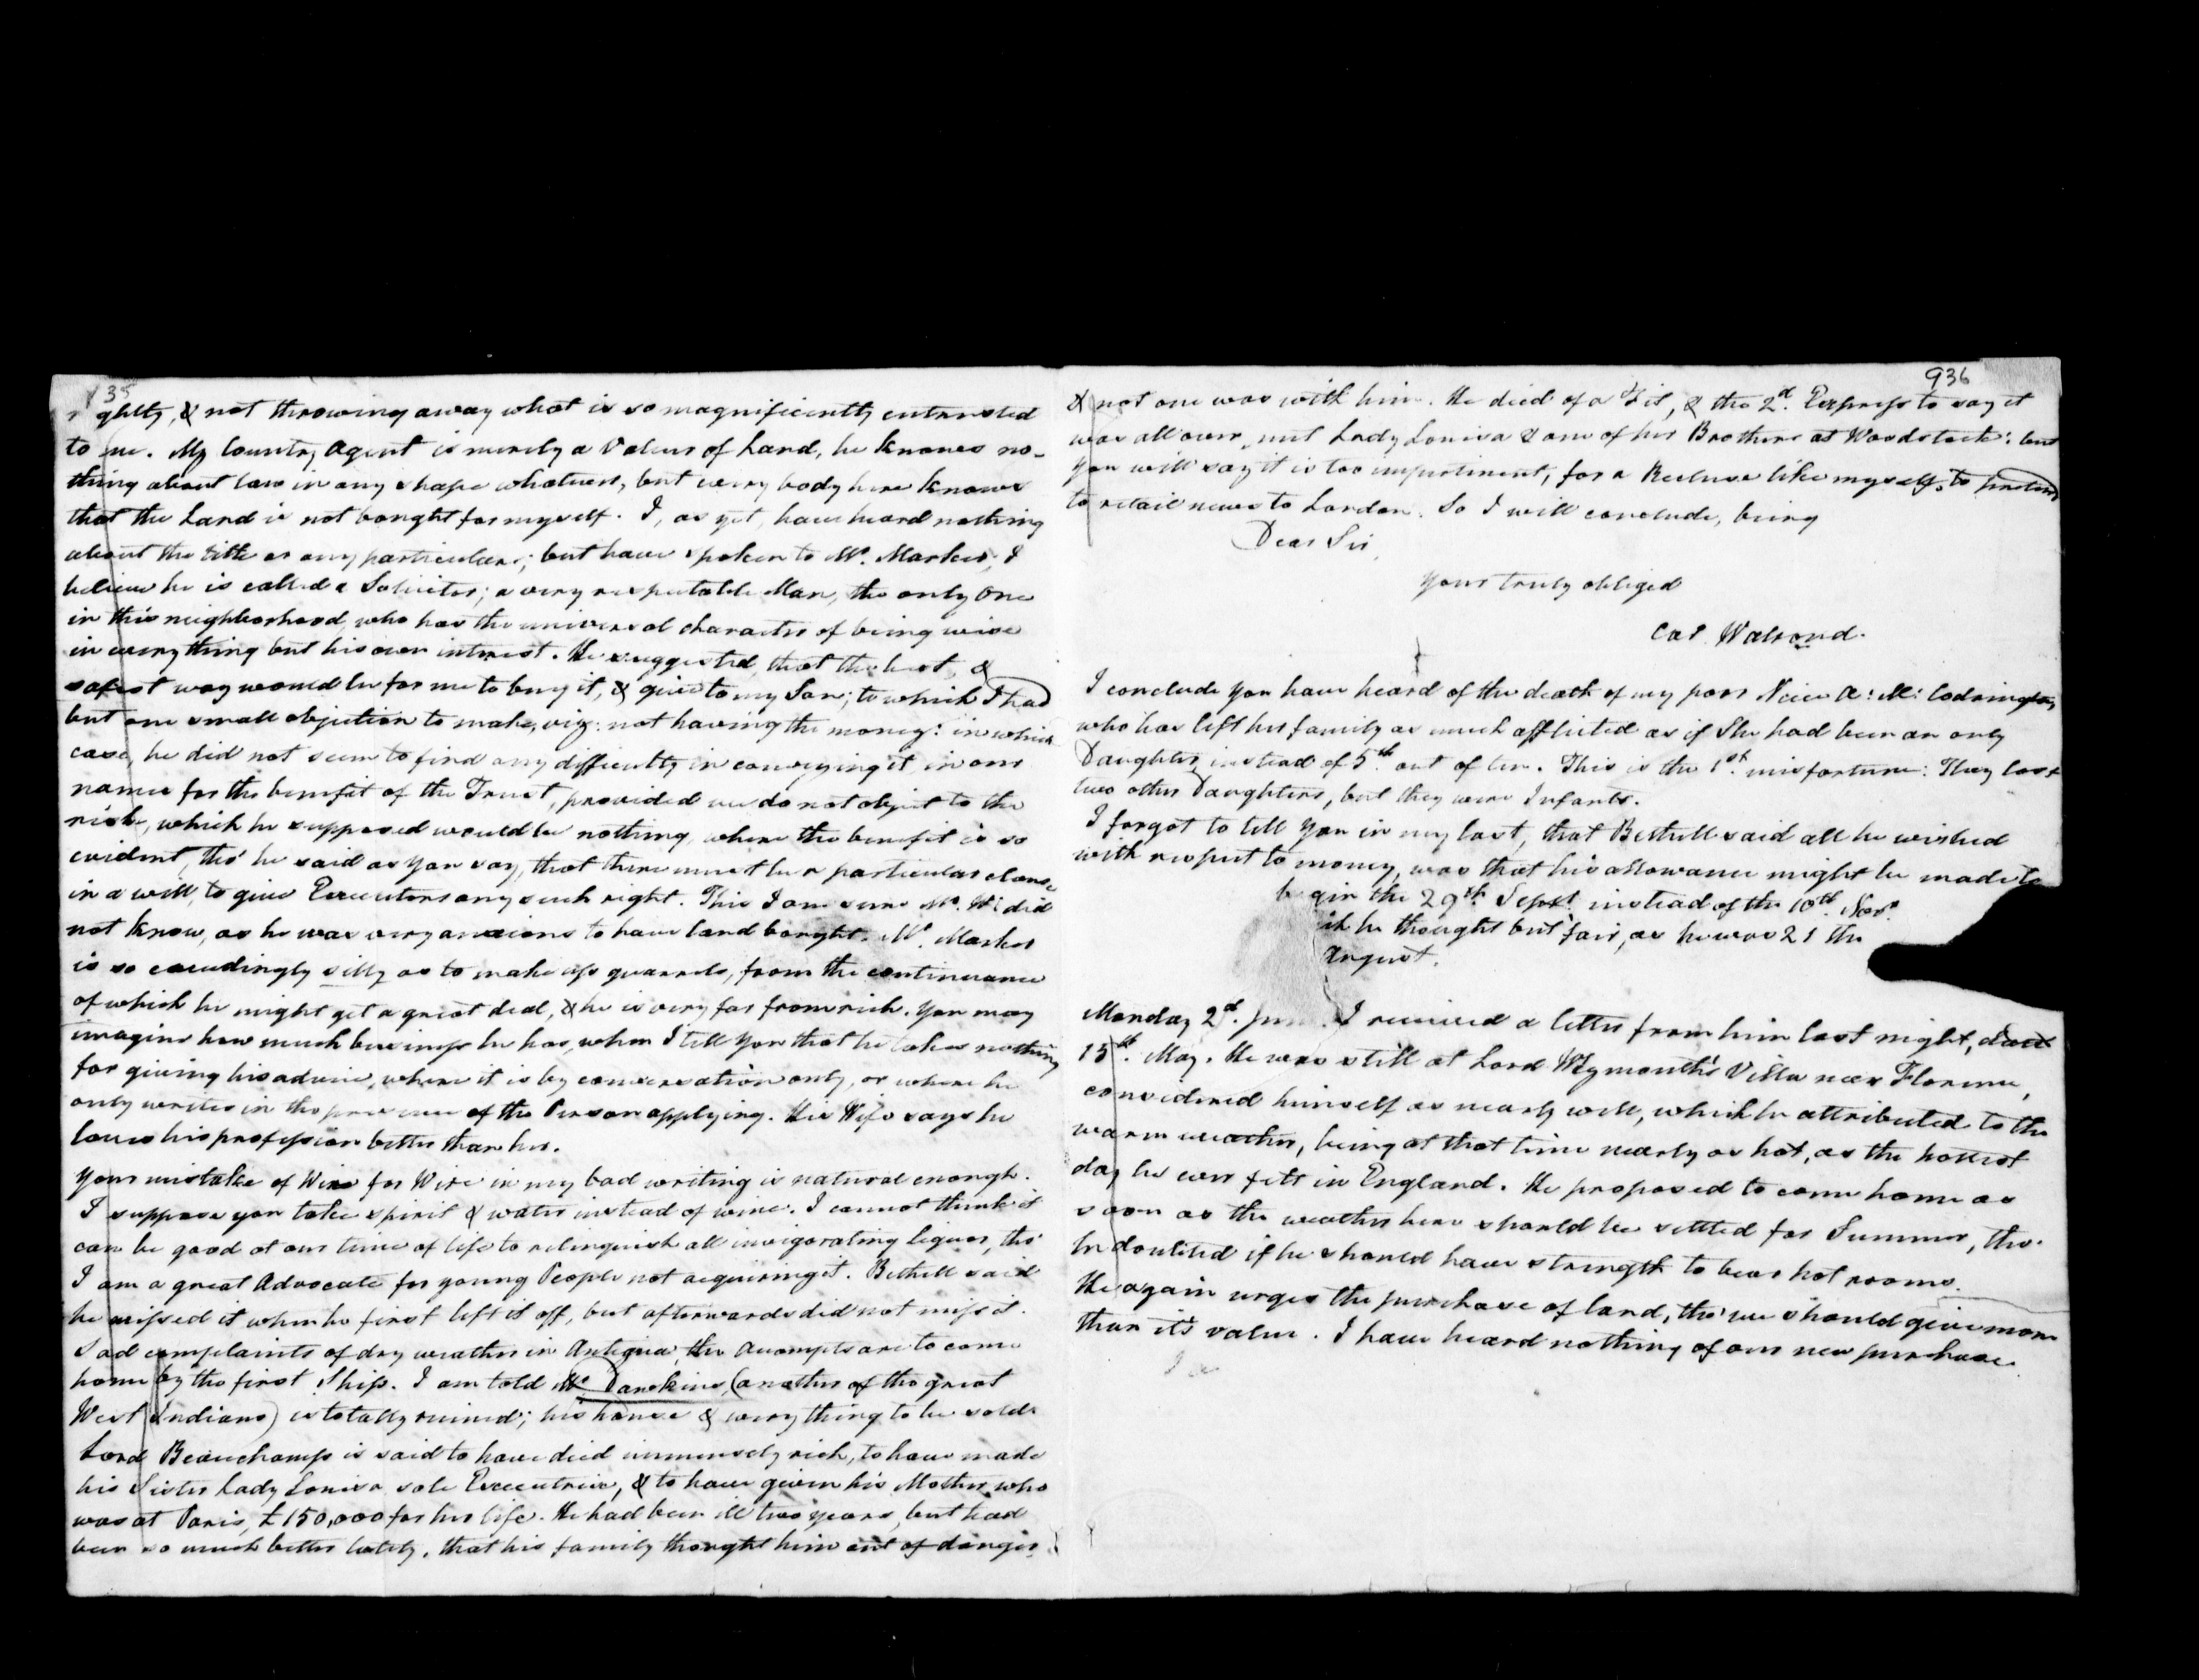 35
ghtly, & not throwing away what is so magnificently entrusted
to me. My Country Agent is merely a Valuer of Land, he knows no-
thing about law in any shape whatever, but every body here knows
that the Land is not bought for myself. I, as yet, have heard nothing
about the title or any particulars; but have spoken to Mr. Markes, I
believe he is called a Solicitor; a very respectable Man, the only One
in this neighborhood, who has the universal character of being wise
in every thing but his own interest. He suggested, that the best, &
safest way would be for me to buy it, & give to my Son; to which I had
but one small objection to make, viz: not having the money: in which
case, he did not seem to find any difficulty in conveying it, in our
names for the benefit of the Trust, provided we do not object to the
risk, which he supposed would be nothing, where the benefit is so
evident, tho' he said as you say, that there must be a particular clause
in a will, to give Executors any such right. This I am sure Mr. W: did
not know, as he was very anxious to have land bought. Mr. Markes
is so exceedingly silly as to make up quarrels, from the continuance
of which he might get a great deal, & he is very far from rich. You may
imagine how much business he has, when I tell you that he takes nothing
for giving his advice, where it is by conversation only, or where he
only writes in the presence of the Person applying. His Wife says he
loves his profession better than her.
Your mistake of Wine for Wire in my bad writing is natural enough.
I suppose you take spirit & water instead of wine. I cannot think it
can be good at our time of life to relinquish all invigorating liquor, tho'
I am a great Advocate for young People not acquiring it. Bethell said
he missed it when he first left it off, but afterwards did not miss it.
Sad complaints of dry weather in Antigua, the Accompts are to come
home by the first Ship. I am told Mr. Dawkins, (another of the great
West Indians) is totally ruined; his house & every thing to be sold.
Lord Beauchamp is said to have died immensely rich, to have made
his Sister Lady Louisa sole Executrix, & to have given his Mother who
was at Paris, £150,000 for her life. He had been ill two years, but had
been so much better lately, that his family thought him out of danger
936
& not one was with him. He died of a Fit, & the 2d. Express to say it
was all over, met Lady Louisa & one of her Brothers at Woodstock: but
you will say it is too impertinent, for a Recluse like myself, to pretend
to retail news to London. So I will conclude, being
Dear Sir,
Yours truly obliged
Car. Walrond.
I conclude you have heard of the death of my poor Niece A: M: Codrington,
who has left her family as much afflicted as if She had been an only
Daughter, instead of 5th. out of ten. This is the 1st. misfortune: They lost
two other Daughters, but they were Infants.
I forgot to tell you in my last, that Bethell said all he wished
with respect to money, was that his allowance might be made to
begin the 29th. Sept. instead of the 10th. Novr.
ch he thought but fair, as he was 21 the
August.
Monday 2d. June. I received a letter from him last night, dated
15th. May. He was still at Lord Weymouth's Villa near Florence,
considered himself as nearly well, which he attributed to the
warm weather, being at that time nearly as hot, as the hottest
day he ever felt in England. He proposed to come home as
soon as the weather here should be settled for Summer, tho'
he doubted if he should have strength to bear hot rooms.
He again urges the purchase of land, tho' we should give more
than it's value. I have heard nothing of our new purchase.